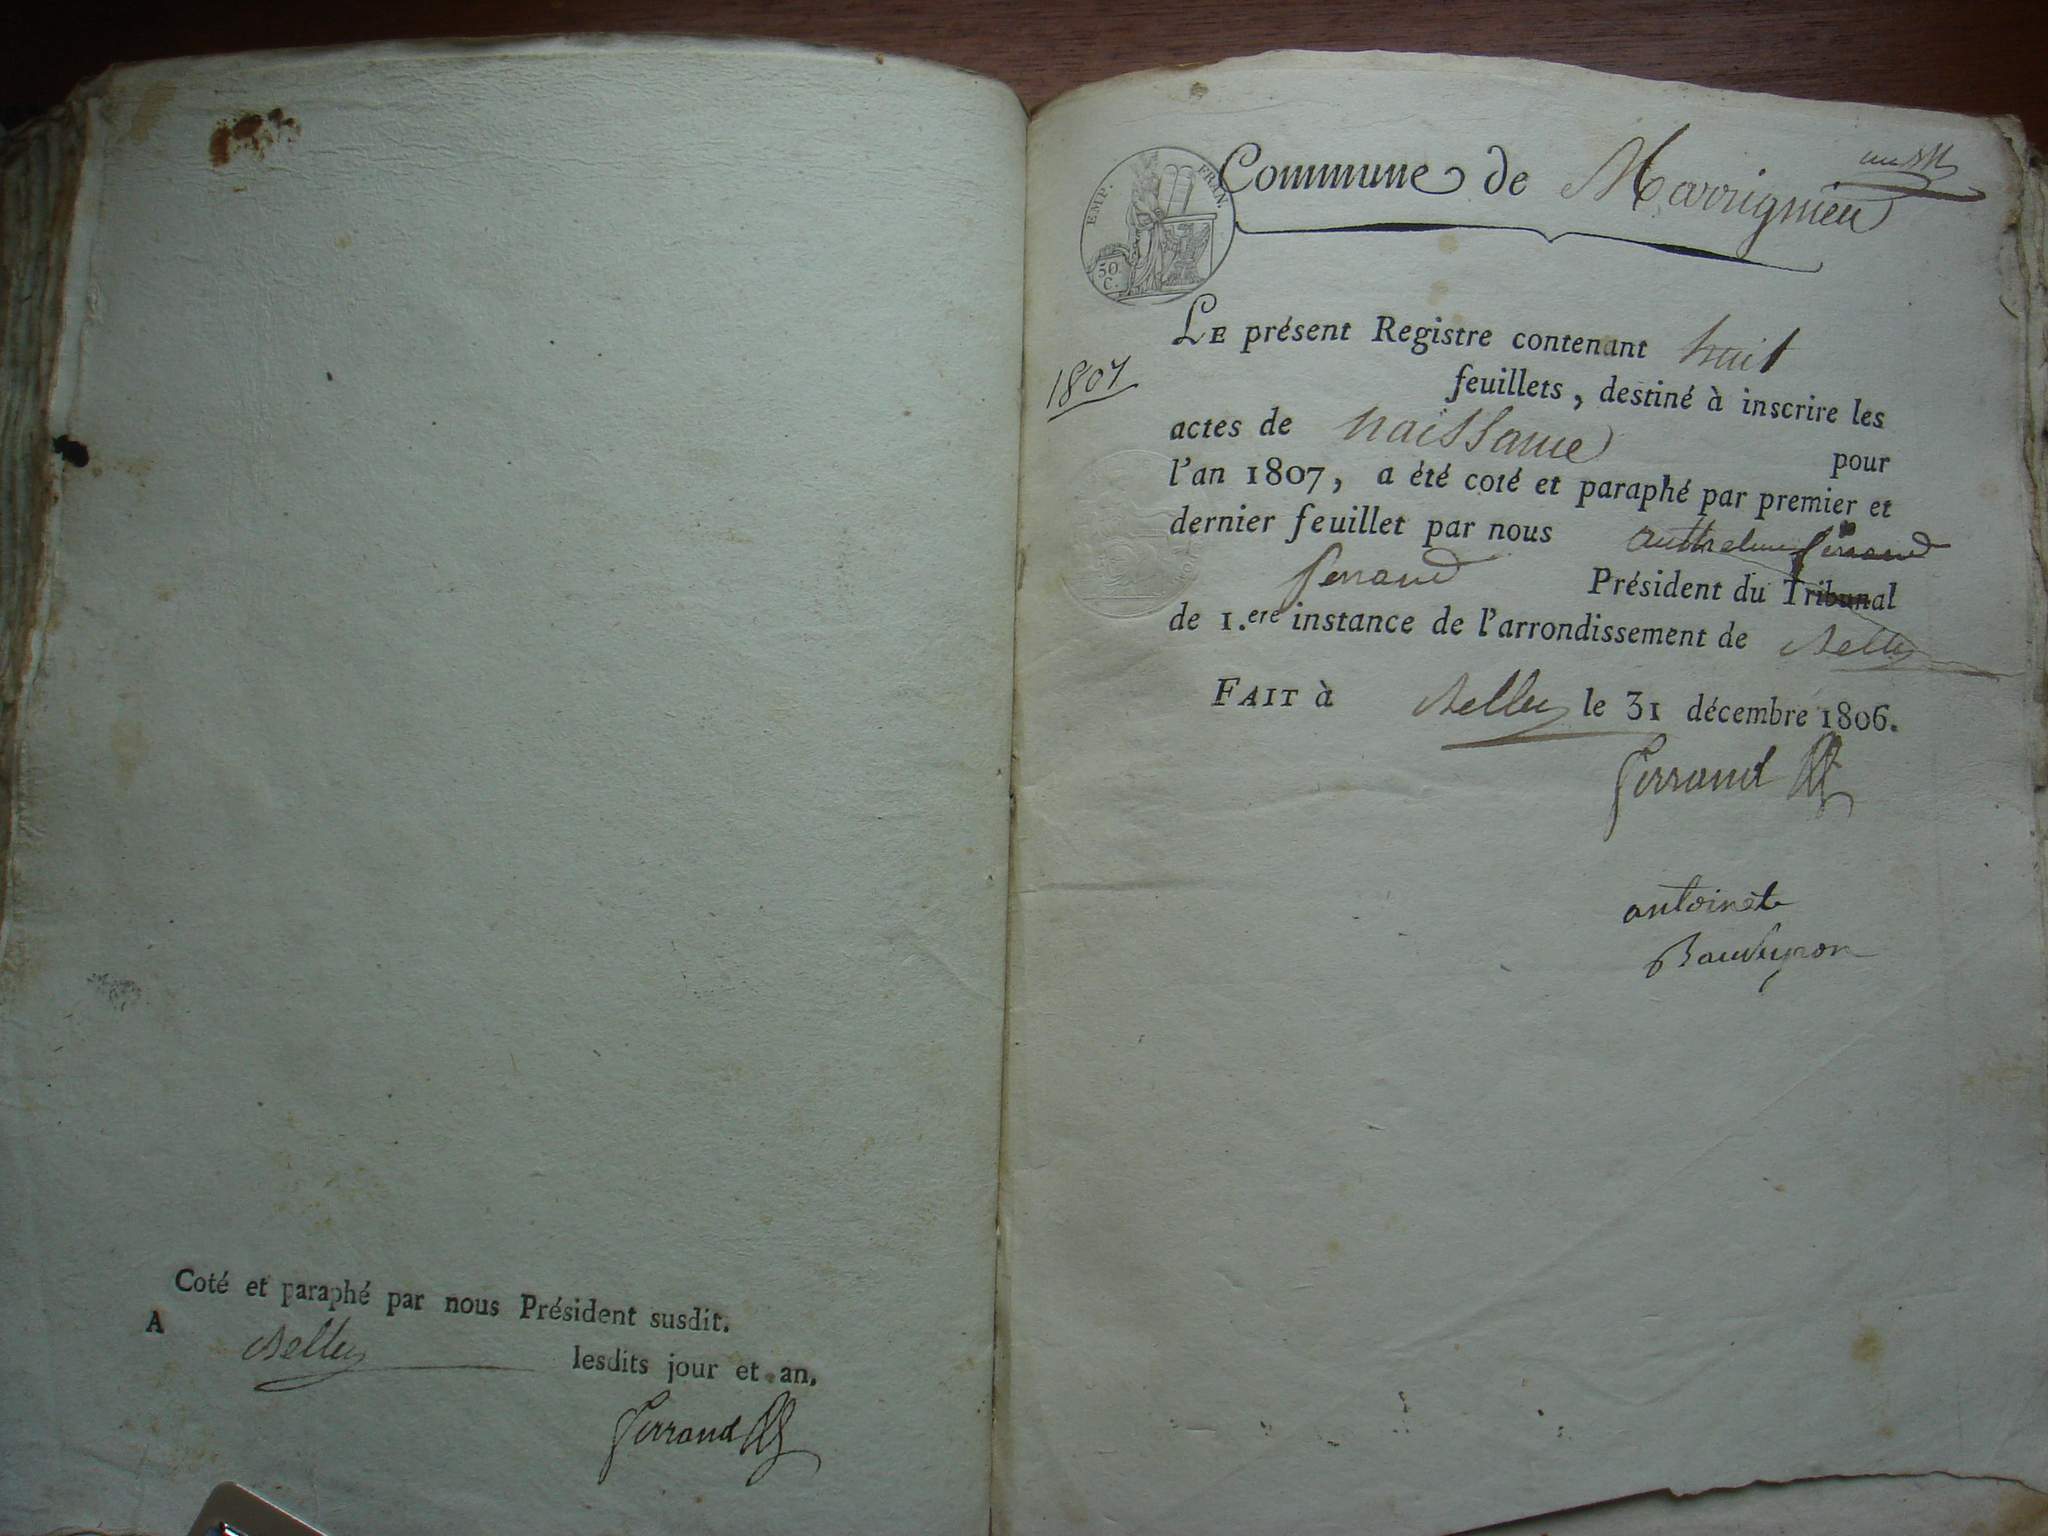 Coté et paraphé par nous Président susdit.
A Belley lesdits jour et an.
Ferrand
Commune de Marrignieu
EMP. FRAN.
50
C.
LE présent Registre contenant huit
1807
feuillets, destiné à inscrire les
actes de naissance pour
l'an 1807, a été coté et paraphé par premier et
dernier feuillet par nous Anthelme Ferrand
Ferrand Président du Tribunal
de 1.ere instance de l'arrondissement de Belley
FAIT à Belley le 31 décembre 1806.
Ferrand
antoinet